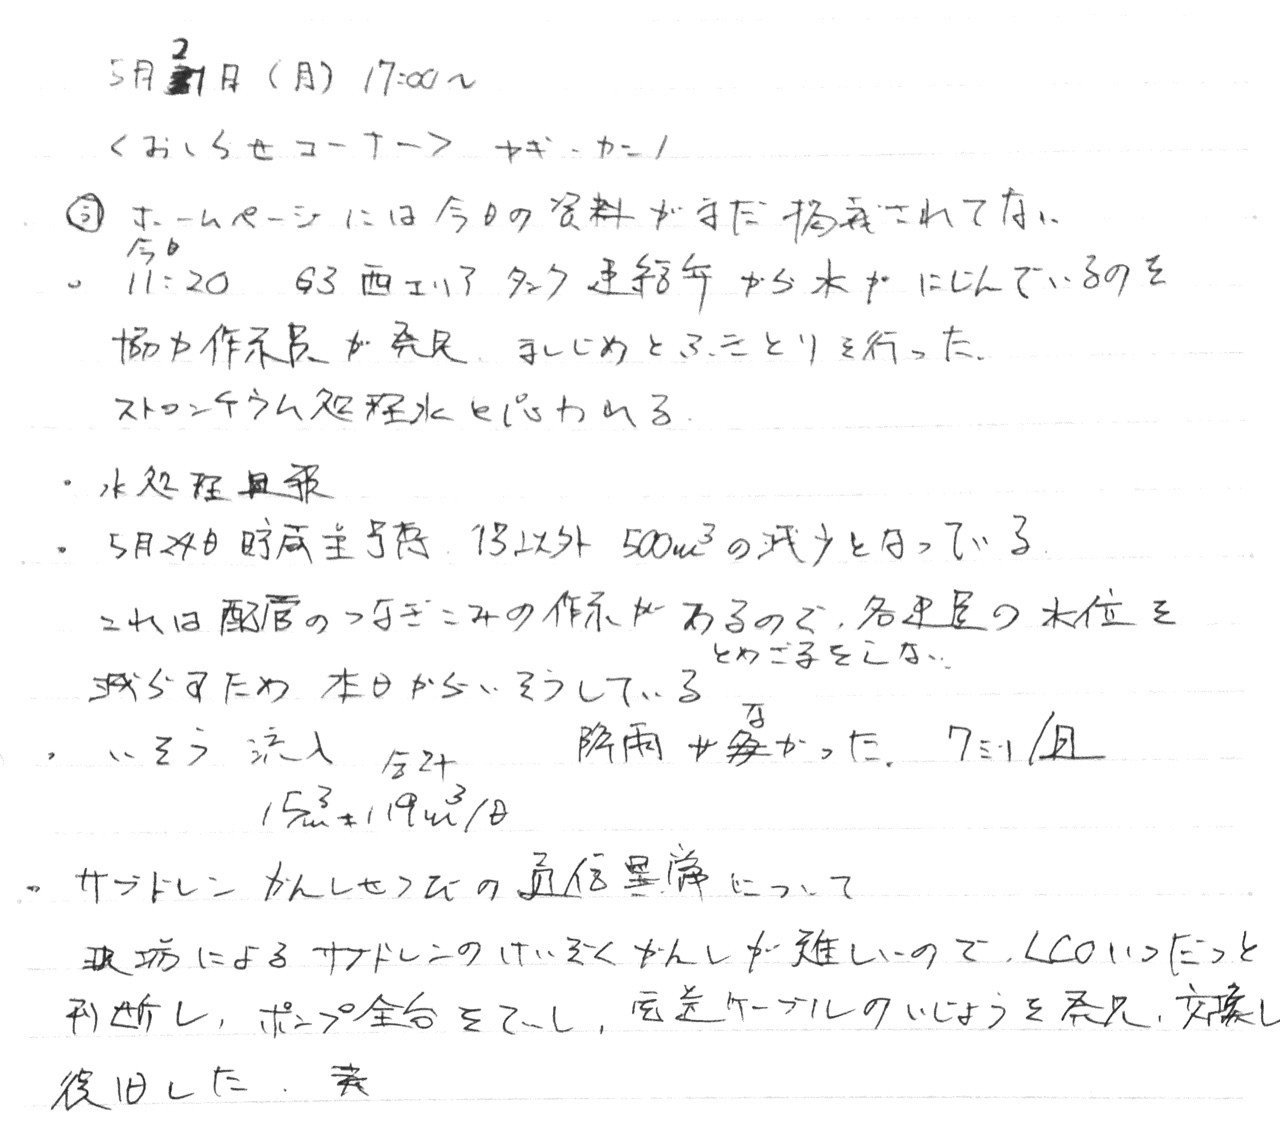 5月2日（月）17:00〜
＜おしらせコーナー＞ ヤギ・カニノ
ホームページには今日の資料がまだ掲載されてない
今日
・11:20 G3西エリア タンク連絡弁から水がにじんでいるのを
協力作業員が発見、ましじめとふきとりを行った。
ストロンチウム処理水と思われる。
・水処理週報
・5月24日貯蔵量 以外 500m³の減少となっている
これは配管のつなぎこみの作業があるので、各建屋の水位を
とめざるをえない
減らすため 本日からいそうしている
・いそう 流入 降雨が なかった。7ミリ/週
合計
15m³+119m³/日
・サブドレン かんしせつびの通信異常について
現場によるサブドレンのけいぞくかんしが難しいので、LCOいつだつと
判断し、ポンプ全台をていし、伝送ケーブルのいじょうを発見、交換し
復旧した。